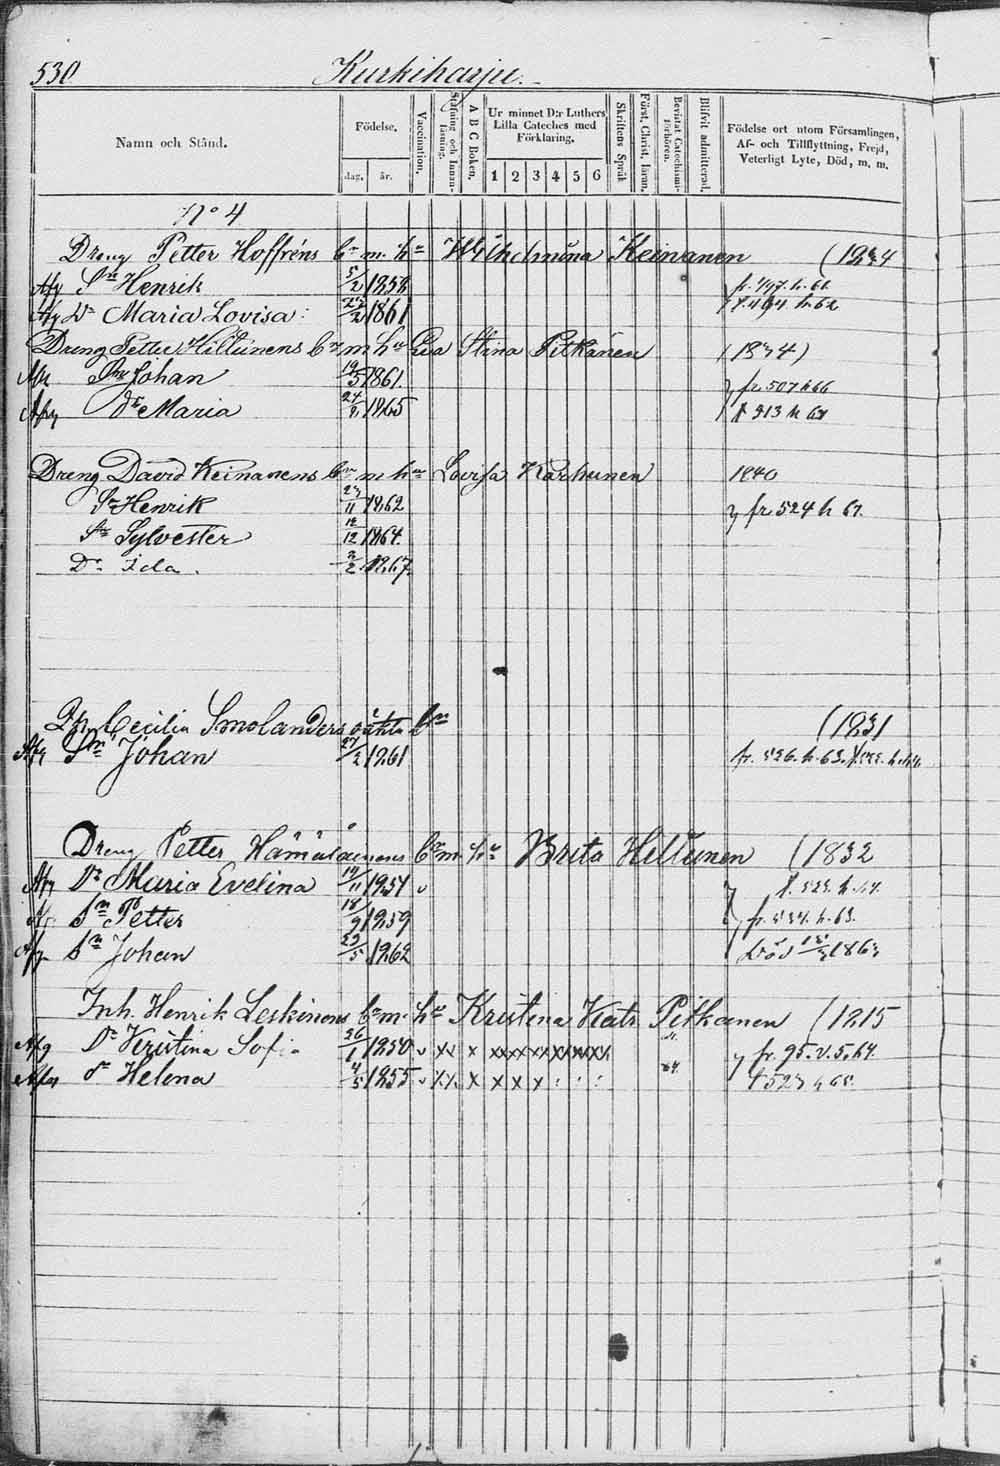 530 Kurkiharju.
Namn och Stånd. Födelse. dag. år. Vaccination. Stafning och Innanläsning. A B C Boken. Ur minnet D:r Luthers Lilla Cateches med Förklaring. 1 2 3 4 5 6 Skriftens Språk Först. Christ. läran. Bevistat Catechismi-förhören. Blifvit admitterad. Födelse ort utom Församlingen, Af- och Tillflyttning, Frejd, Veterligt Lyte, Död, m. m.
No 4
Dreng Petter Hoffréns bn m. hu Wilhelmina Keinanen (1834
Afg Sn Henrik 5/2 1858 fr. 497. h. 61.
Afg Dr Maria Lovisa: 22/2 1861 t. 494 h. 62
Dreng Petter Hiltunens bn m hu Eva Stina Pitkänen (1834)
Afg Sn Johan 19/5 1861 fr. 507 h 66
Afg dr Maria 24/8 1865 t 513 h 67
Dreng David Keinanens bn m hu Lovisa Karhunen 1840
Sn Henrik 23/11 1862 fr. 524 h 67.
Sn Sylvester 18/12 1864.
Dr Ida. 2/2 1867.
Ph. Cecilia Smolanders oäkta bn (1831
Afg Sn Johan 27/2 1861 fr. 526. h. 63.
Dreng Petter Hämäläinens bn m. hu Brita Hiltunen (1832
Afg Dr Maria Evelina 19/11 1857 v t. 523. h. 64.
Afg Sn Petter 18/9 1859 fr. 534. h. 63.
Afg Sn Johan 23/5 1862 Död 1863
Inh. Henrik Leskinens bn m. hu Kristina Katr. Pitkänen (1815
Afg Dr Kristina Sofia 26/1 1850 v xx x xx xx xx xx xx xx fr. 95. v. 5. 64.
Afg dr Helena 4/5 1855 v xx x x x x : : : 64. t 523 h 65.